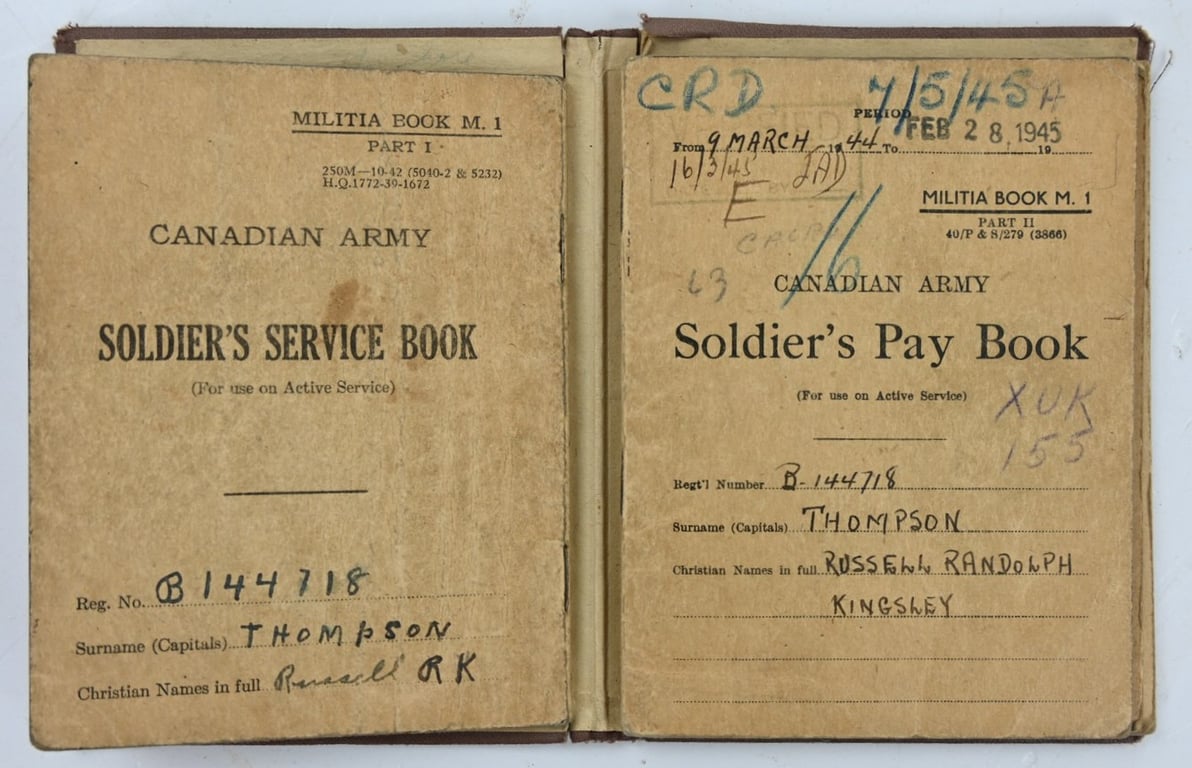 MILITIA BOOK M. 1
PART I
250M—10-42 (5040-2 & 5232)
H.Q. 1772-39-1672
CANADIAN ARMY
SOLDIER'S SERVICE BOOK
(For use on Active Service)
Reg. No. B 144718
Surname (Capitals) THOMPSON
Christian Names in full Russell RK
CRD 7/5/45 A
PERIOD
From 9 MARCH 1944 To FEB 28, 1945 19
16/3/45
E
16
MILITIA BOOK M. 1
PART II
40/P & S/279 (3866)
63
CANADIAN ARMY
Soldier's Pay Book
(For use on Active Service)
XUK
155
Regt'l Number B-144718
Surname (Capitals) THOMPSON
Christian Names in full RUSSELL RANDOLPH
KINGSLEY